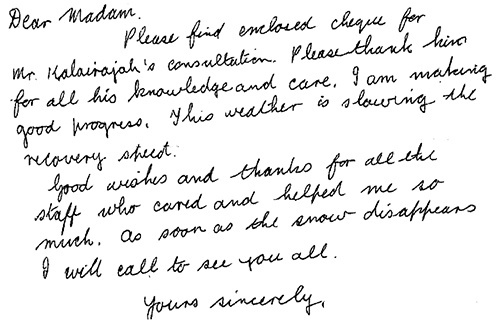 Dear Madam.
Please find enclosed cheque for
Mr. Kalairajah's consultation. Please thank him
for all his knowledge and care. I am making
good progress. This weather is slowing the
recovery speed.
Good wishes and thanks for all the
staff who cared and helped me so
much. As soon as the snow disappears
I will call to see you all.
Yours sincerely,